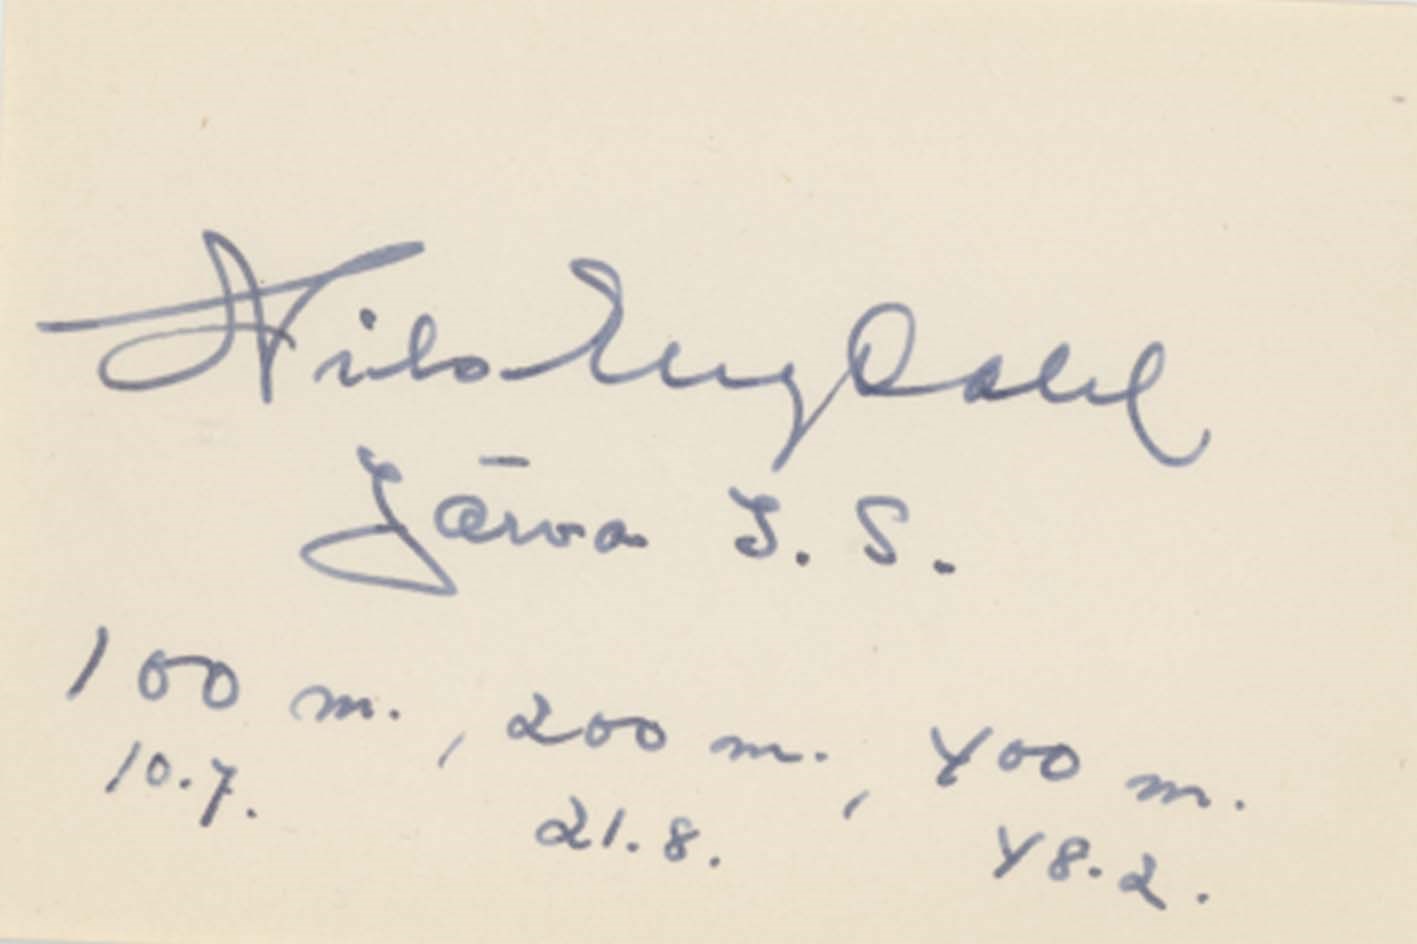 Nils Engdahl
Järva I. S.
100 m., 200 m., 400 m.
10.7. 21.8. 48.2.